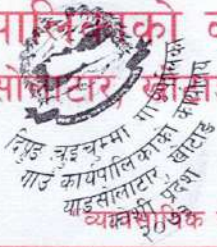 पालिकाको
सोलाटार, खोटाङ
दिप्रुङ चुइचुम्मा गाउँपालिका
गाउँ कार्यपालिकाको कार्यालय
याङसोलाटार, खोटाङ
प्रदेश
२०७३